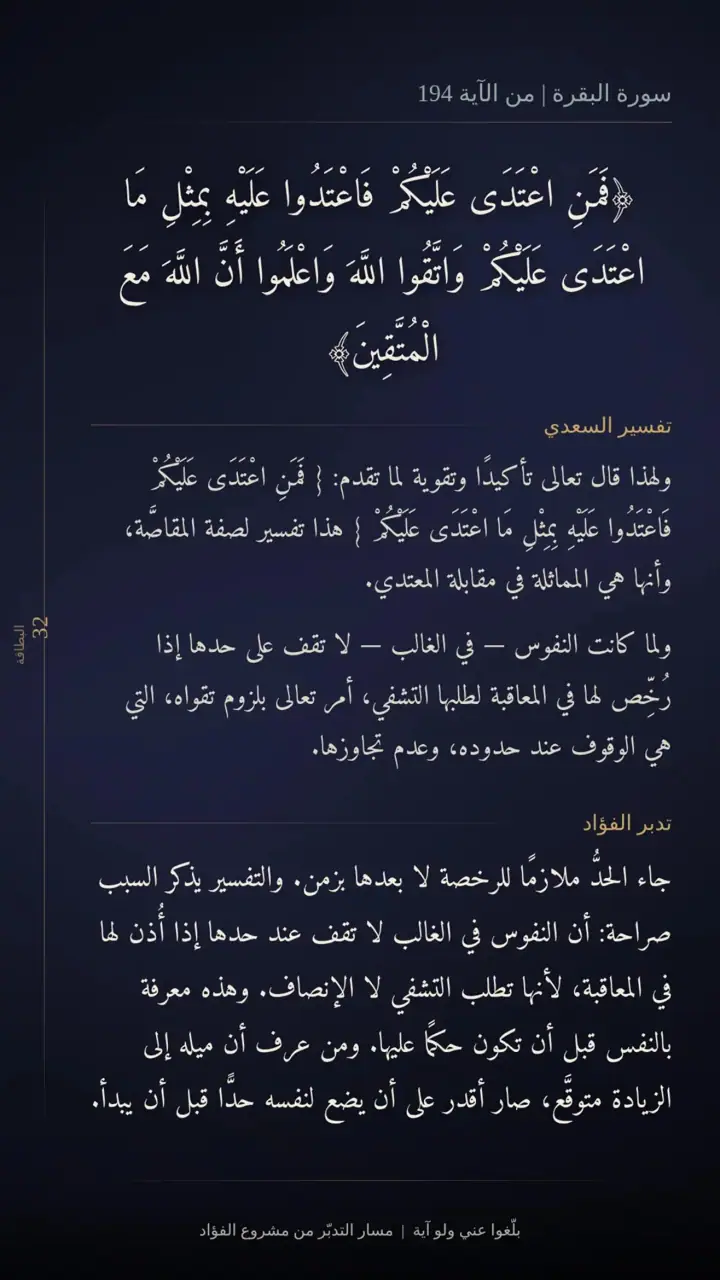 سورة البقرة | من الآية 194
﴿فَمَنِ اعْتَدَى عَلَيْكُمْ فَاعْتَدُوا عَلَيْهِ بِمِثْلِ مَا
اعْتَدَى عَلَيْكُمْ وَاتَّقُوا اللَّهَ وَاعْلَمُوا أَنَّ اللَّهَ مَعَ
الْمُتَّقِينَ﴾
تفسير السعدي
ولهذا قال تعالى تأكيدًا وتقوية لما تقدم: { فَمَنِ اعْتَدَى عَلَيْكُمْ
فَاعْتَدُوا عَلَيْهِ بِمِثْلِ مَا اعْتَدَى عَلَيْكُمْ } هذا تفسير لصفة المقاصَّة،
وأنها هي المماثلة في مقابلة المعتدي.
ولما كانت النفوس — في الغالب — لا تقف على حدها إذا
رُخِّص لها في المعاقبة لطلبها التشفي، أمر تعالى بلزوم تقواه، التي
هي الوقوف عند حدوده، وعدم تجاوزها.
تدبر الفؤاد
جاء الحدُّ ملازمًا للرخصة لا بعدها بزمن. والتفسير يذكر السبب
صراحة: أن النفوس في الغالب لا تقف عند حدها إذا أُذن لها
في المعاقبة، لأنها تطلب التشفي لا الإنصاف. وهذه معرفة
بالنفس قبل أن تكون حكمًا عليها. ومن عرف أن ميله إلى
الزيادة متوقَّع، صار أقدر على أن يضع لنفسه حدًّا قبل أن يبدأ.
البطاقة
32
بلّغوا عني ولو آية | مسار التدبّر من مشروع الفؤاد